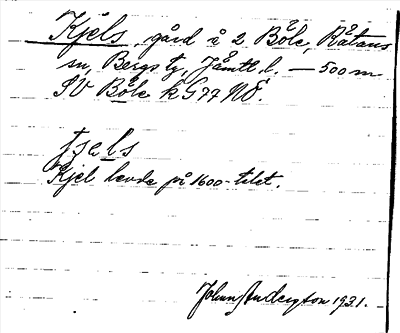 Kjels, gård å 2 Böle, Råtans
sn, Bergs tg, Jämtl. l. — 500 m
SV Böle k G77 NÖ.
tjels
Kjel levde på 1600-talet.
Johan Anderzon 1931.